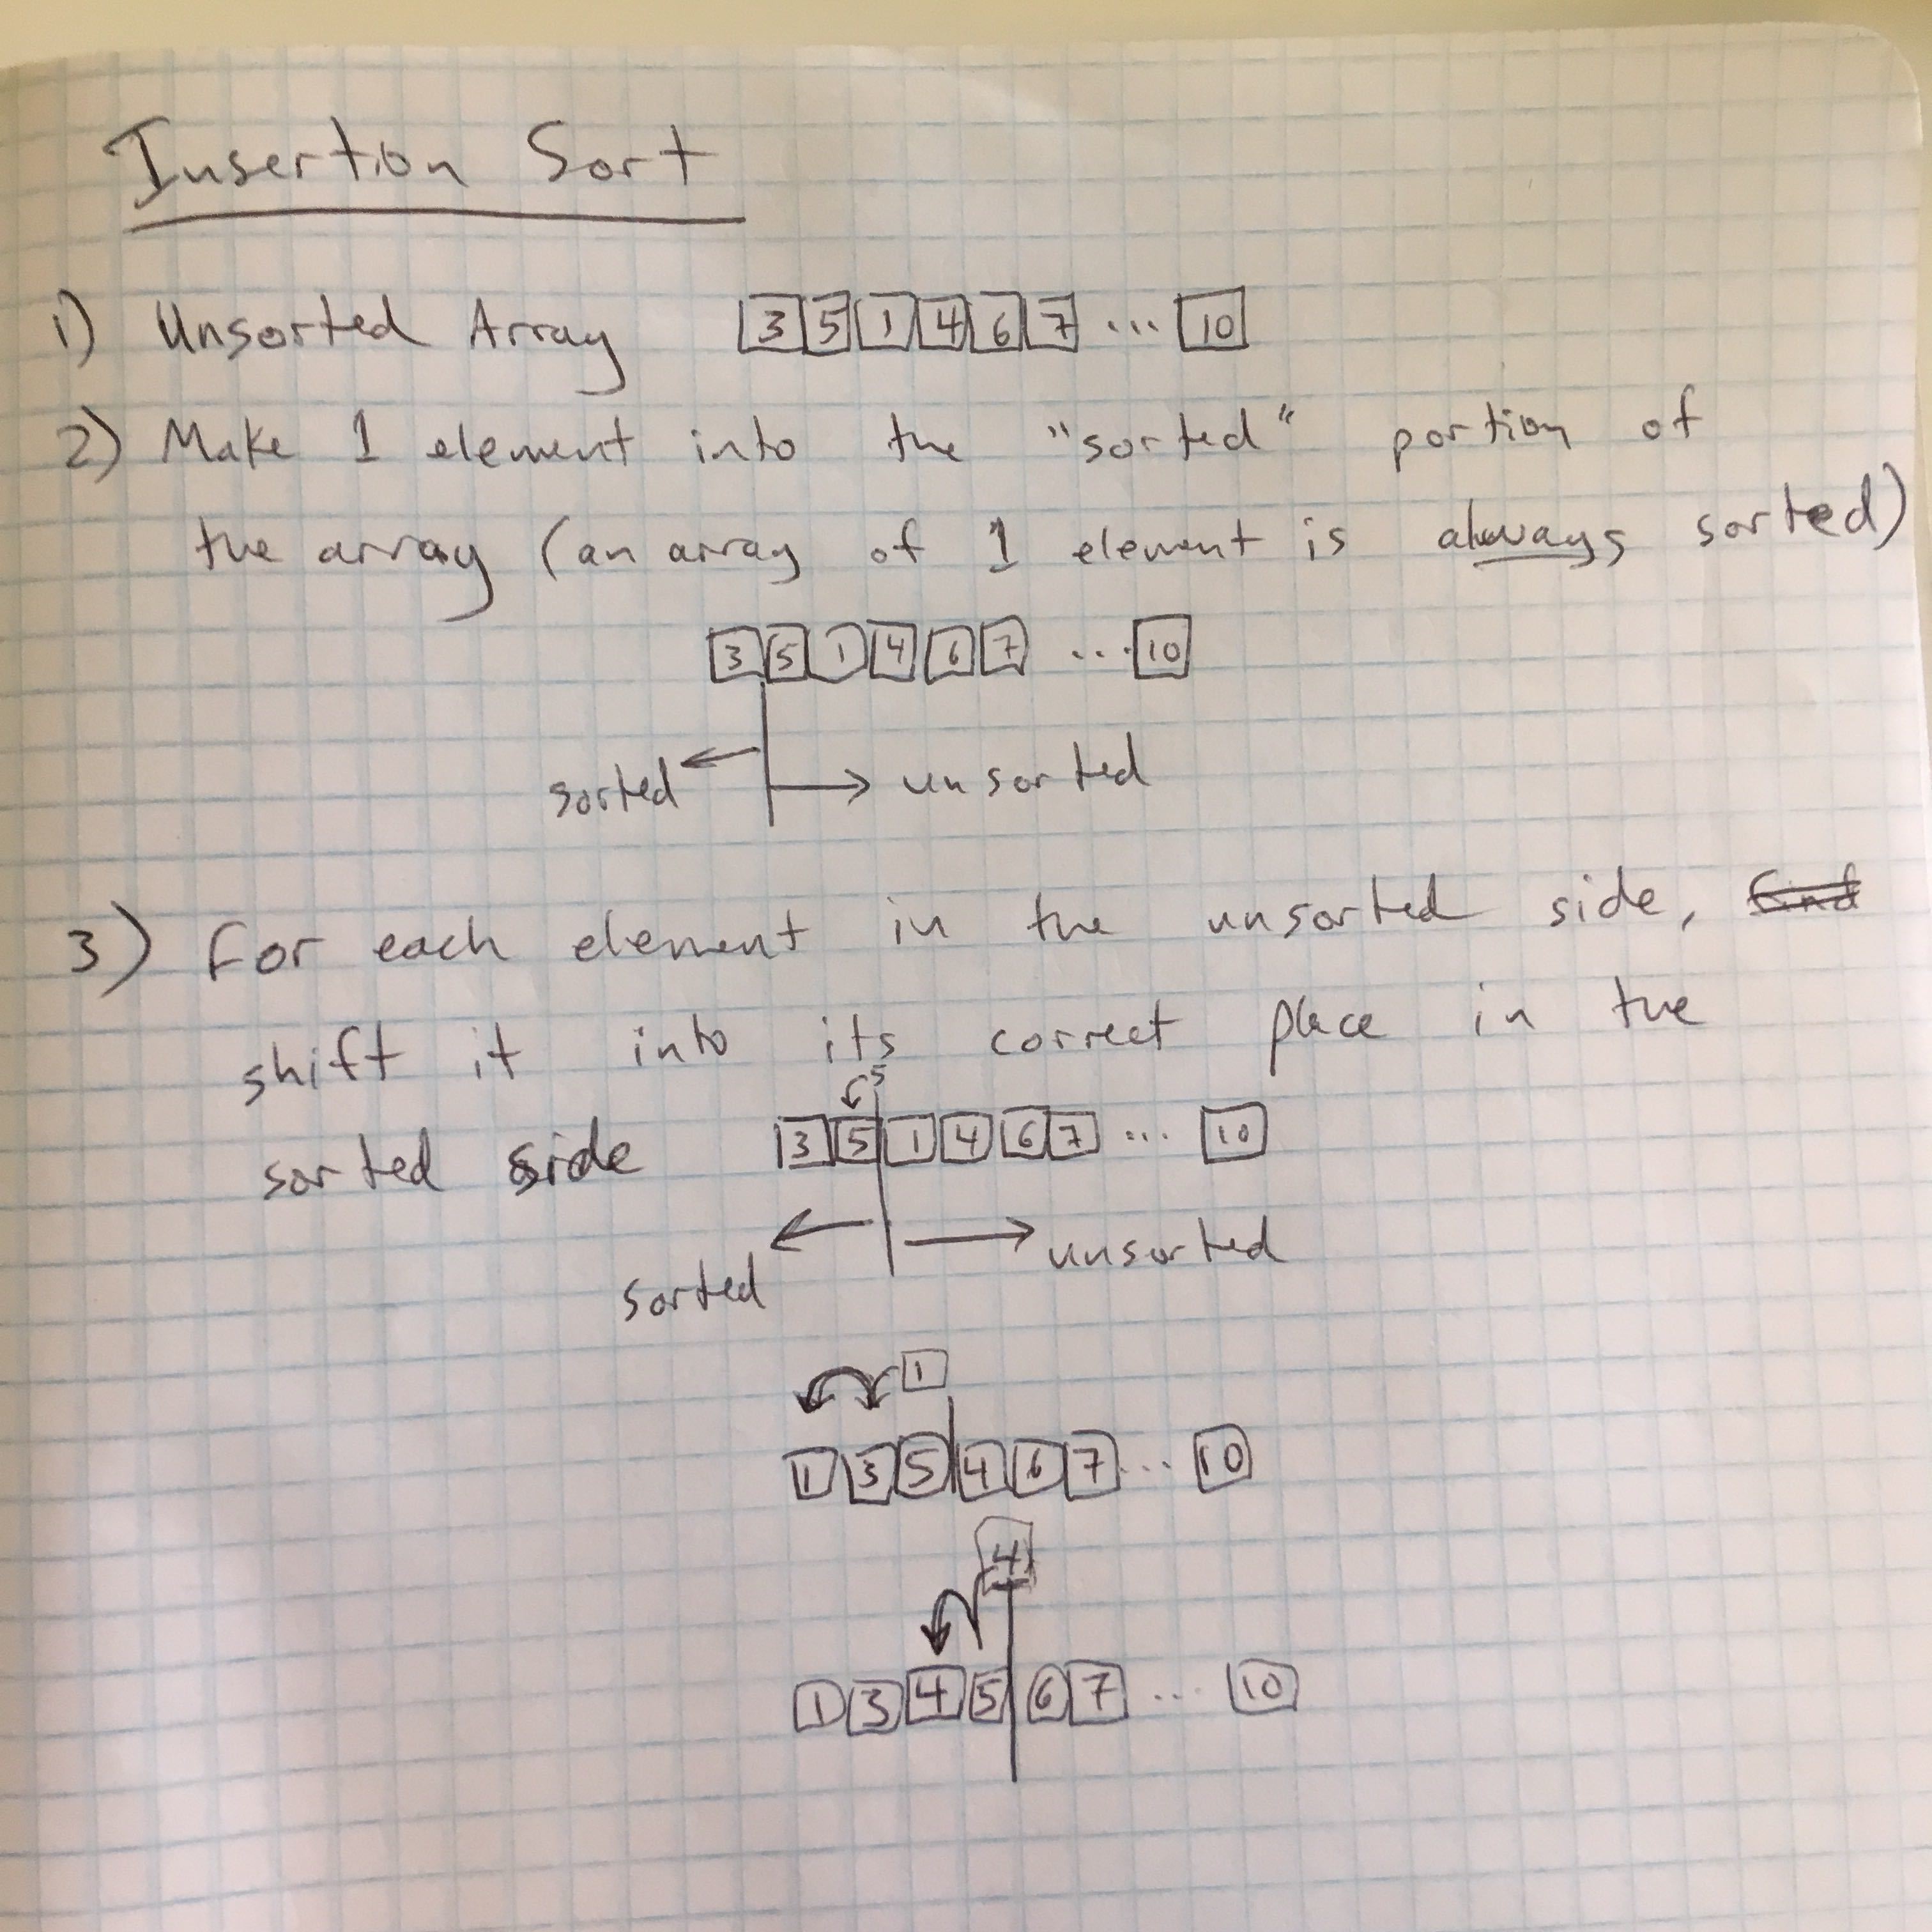 Insertion Sort
1) Unsorted Array 3 5 1 4 6 7 ... 10
2) Make 1 element into the "sorted" portion of
the array (an array of 1 element is always sorted)
3 5 1 4 6 7 ... 10
sorted unsorted
3) For each element in the unsorted side, find
shift it into its correct place in the
5
sorted side 3 5 1 4 6 7 ... 10
sorted unsorted
1
1 3 5 4 6 7 ... 10
4
1 3 4 5 6 7 ... 10